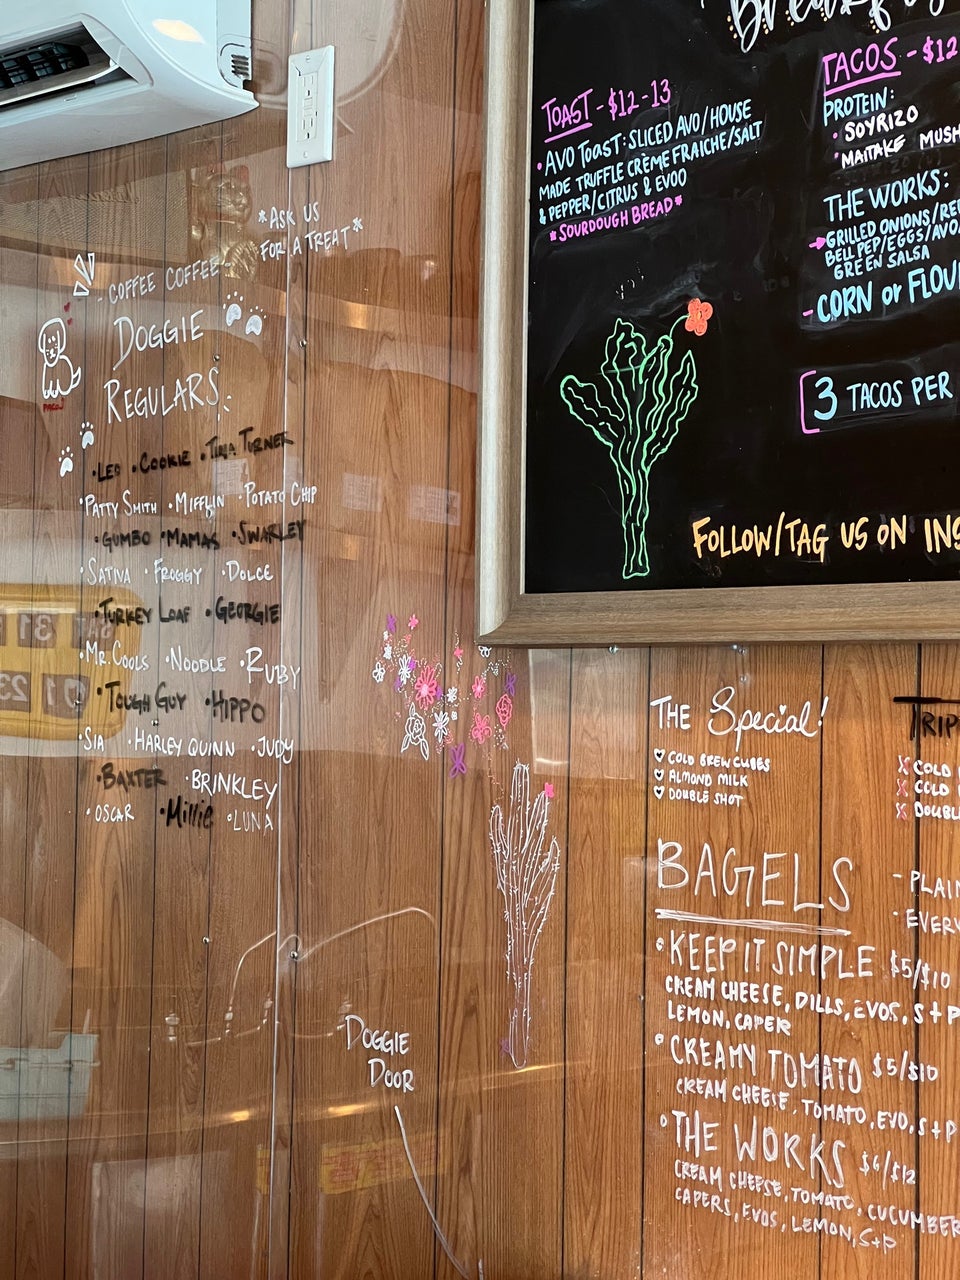 *ASK US
FOR A TREAT*
- COFFEE COFFEE
DOGGIE
REGULARS:
PACO
•LEO •COOKIE •TINA TURNER
•PATTY SMITH •MIFFLIN •POTATO CHIP
•GUMBO •MAMAS •SWARLEY
•SATIVA •FROGGY •DOLCE
•TURKEY LOAF •GEORGIE
•MR. COOLS •NOODLE •RUBY
•TOUGH GUY •HIPPO
•SIA •HARLEY QUINN •JUDY
•BAXTER •BRINKLEY
•OSCAR •Millie •LUNA
DOGGIE
DOOR
TOAST - $12-13
•AVO TOAST: SLICED AVO/HOUSE
MADE TRUFFLE CRÈME FRAICHE/SALT
& PEPPER/CITRUS & EVOO
*SOURDOUGH BREAD*
TACOS - $12
PROTEIN:
• SOYRIZO
• MAITAKE MUSH
THE WORKS:
GRILLED ONIONS/RE
BELL PEP/EGGS/AVO/
GREEN SALSA
- CORN or FLOU
[3 TACOS PER
FOLLOW/TAG US ON INS
THE Special!
COLD BREW CUBES
ALMOND MILK
DOUBLE SHOT
TRIP
X COLD
X COLD
X DOUBL
BAGELS
- PLAIN
• EVERY
• KEEP IT SIMPLE $5/$10
CREAM CHEESE, DILLS, EVOS, S+P
LEMON, CAPER
• CREAMY TOMATO $5/$10
CREAM CHEESE, TOMATO, EVO, S+P
• THE WORKS $6/$12
CREAM CHEESE, TOMATO, CUCUMBER
CAPERS, EVOS, LEMON, S+P